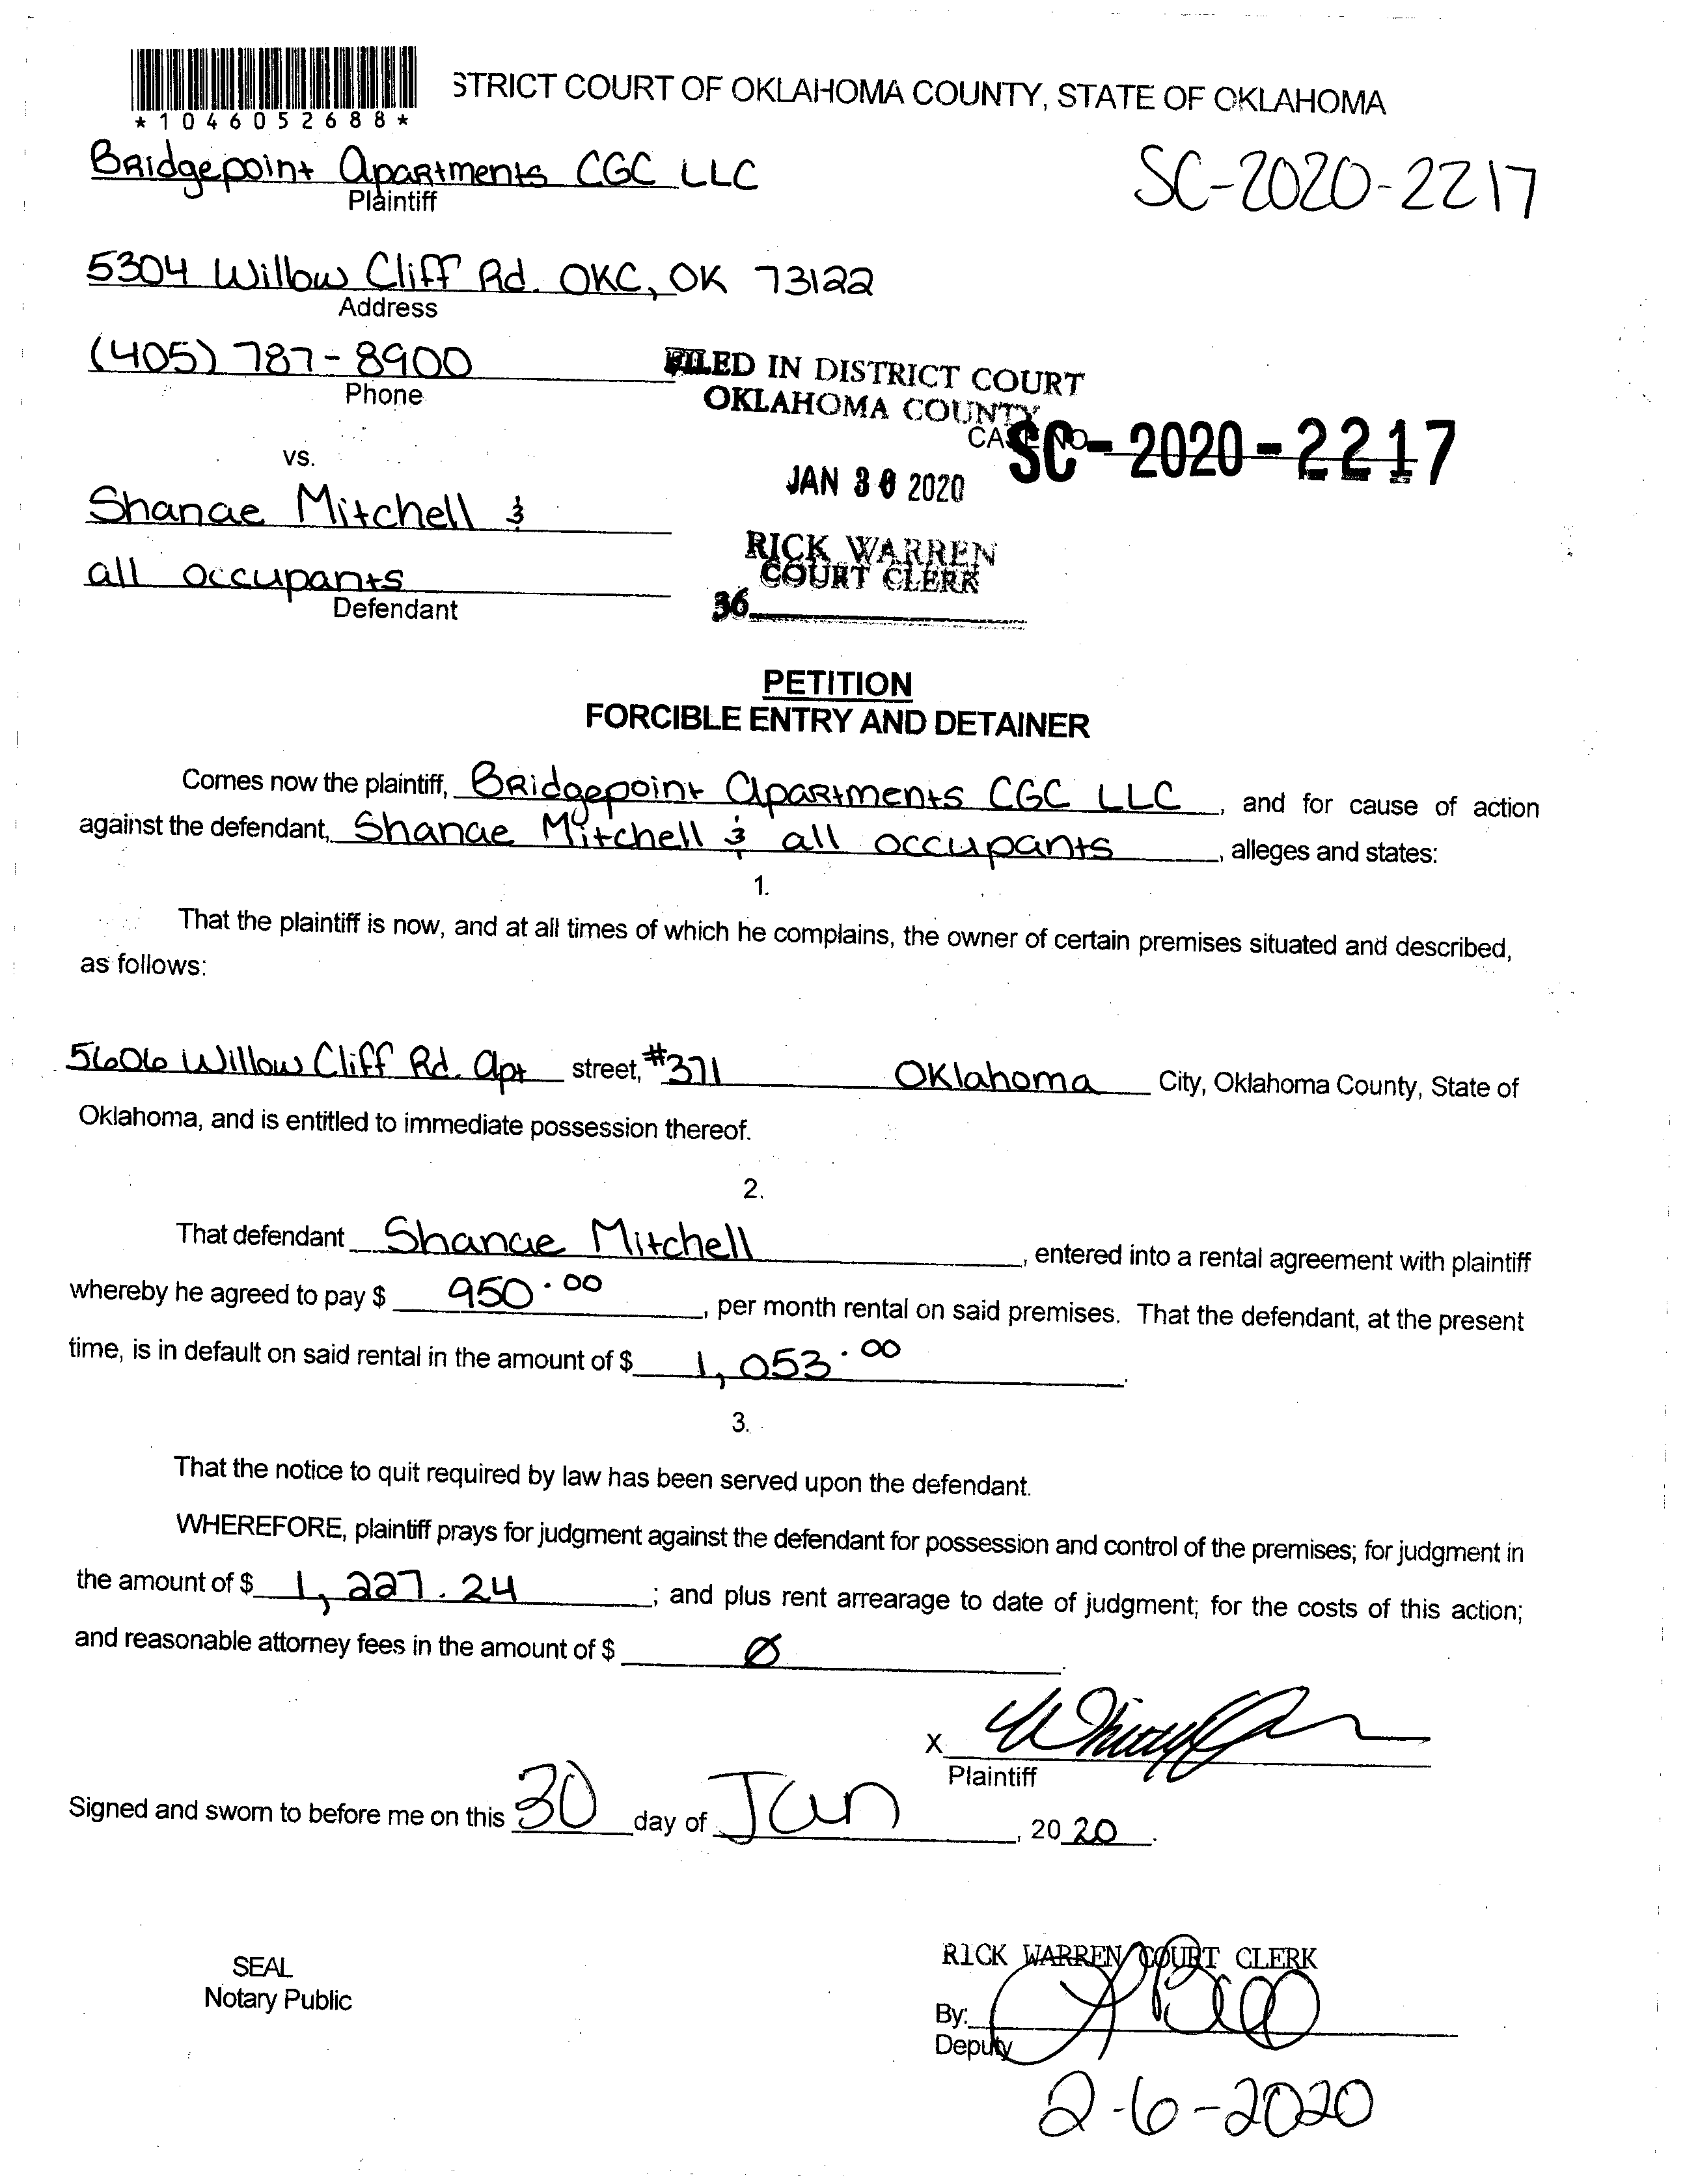 *1046052688*
STRICT COURT OF OKLAHOMA COUNTY, STATE OF OKLAHOMA
Bridgepoint Apartments CGC LLC
Plaintiff
SC-2020-2217
5304 Willow Cliff Rd. OKC, OK 73122
Address
(405) 787-8900
Phone
FILED IN DISTRICT COURT
OKLAHOMA COUNTY
CASE NO. SC-2020-2217
JAN 30 2020
vs.
Shanae Mitchell &
RICK WARREN
COURT CLERK
all occupants
Defendant
36
PETITION
FORCIBLE ENTRY AND DETAINER
Comes now the plaintiff, Bridgepoint Apartments CGC LLC, and for cause of action
against the defendant, Shanae Mitchell & all occupants, alleges and states:
1.
That the plaintiff is now, and at all times of which he complains, the owner of certain premises situated and described,
as follows:
5606 Willow Cliff Rd. Apt street, #371 Oklahoma City, Oklahoma County, State of
Oklahoma, and is entitled to immediate possession thereof.
2.
That defendant Shanae Mitchell, entered into a rental agreement with plaintiff
whereby he agreed to pay $ 950.00, per month rental on said premises. That the defendant, at the present
time, is in default on said rental in the amount of $ 1,053.00.
3.
That the notice to quit required by law has been served upon the defendant.
WHEREFORE, plaintiff prays for judgment against the defendant for possession and control of the premises; for judgment in
the amount of $ 1,227.24; and plus rent arrearage to date of judgment; for the costs of this action;
and reasonable attorney fees in the amount of $ Ø.
X
Plaintiff
Signed and sworn to before me on this 30 day of Jan, 2020.
SEAL
Notary Public
RICK WARREN COURT CLERK
By:
Deputy
2-6-2020